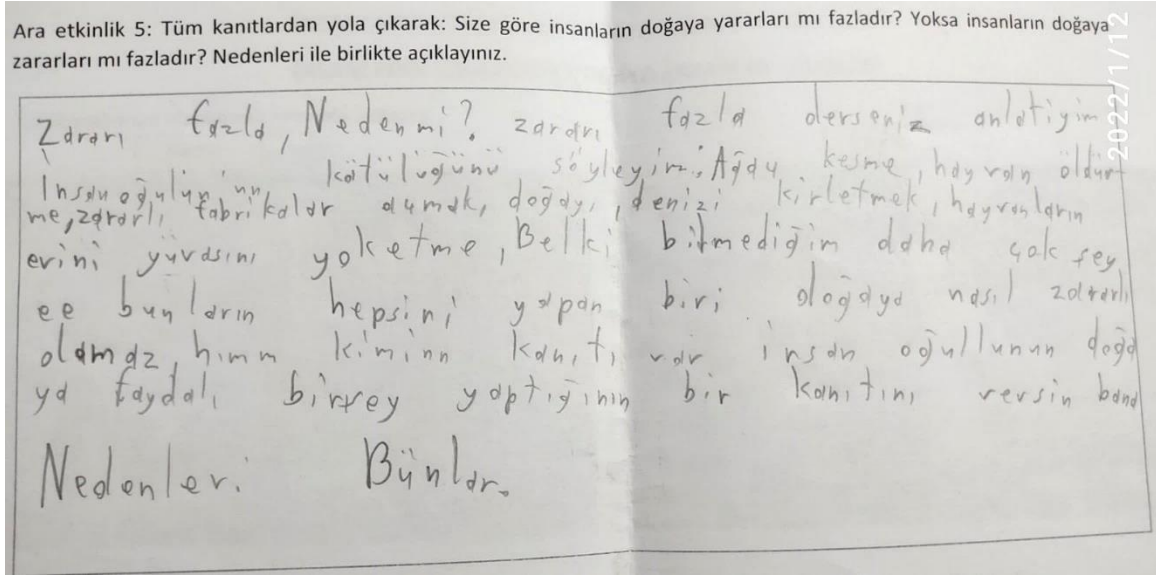 Ara etkinlik 5: Tüm kanıtlardan yola çıkarak: Size göre insanların doğaya yararları mı fazladır? Yoksa insanların doğaya
zararları mı fazladır? Nedenleri ile birlikte açıklayınız.
2022/1/12
Zararı fazla, Neden mi? zararı fazla derseniz anlatiyim
İnsanoğulunun'un kötülüğünü söyleyim; Ağaу kesme, hayvan öldür
me, zararlı fabrikalar dumak, doğayı, denizi kirletmek, hayvanların
evini yüvasını yoketme, Belki bilmediğim daha çok şey
ee bunların hepsini yapan biri doğaya nasıl zararlı
olamaz, hımm kiminn kanıtı var insan oğullunun doğa
ya faydalı birşey yaptığının bir kanıtını versin bana
Nedenleri Bünlar.